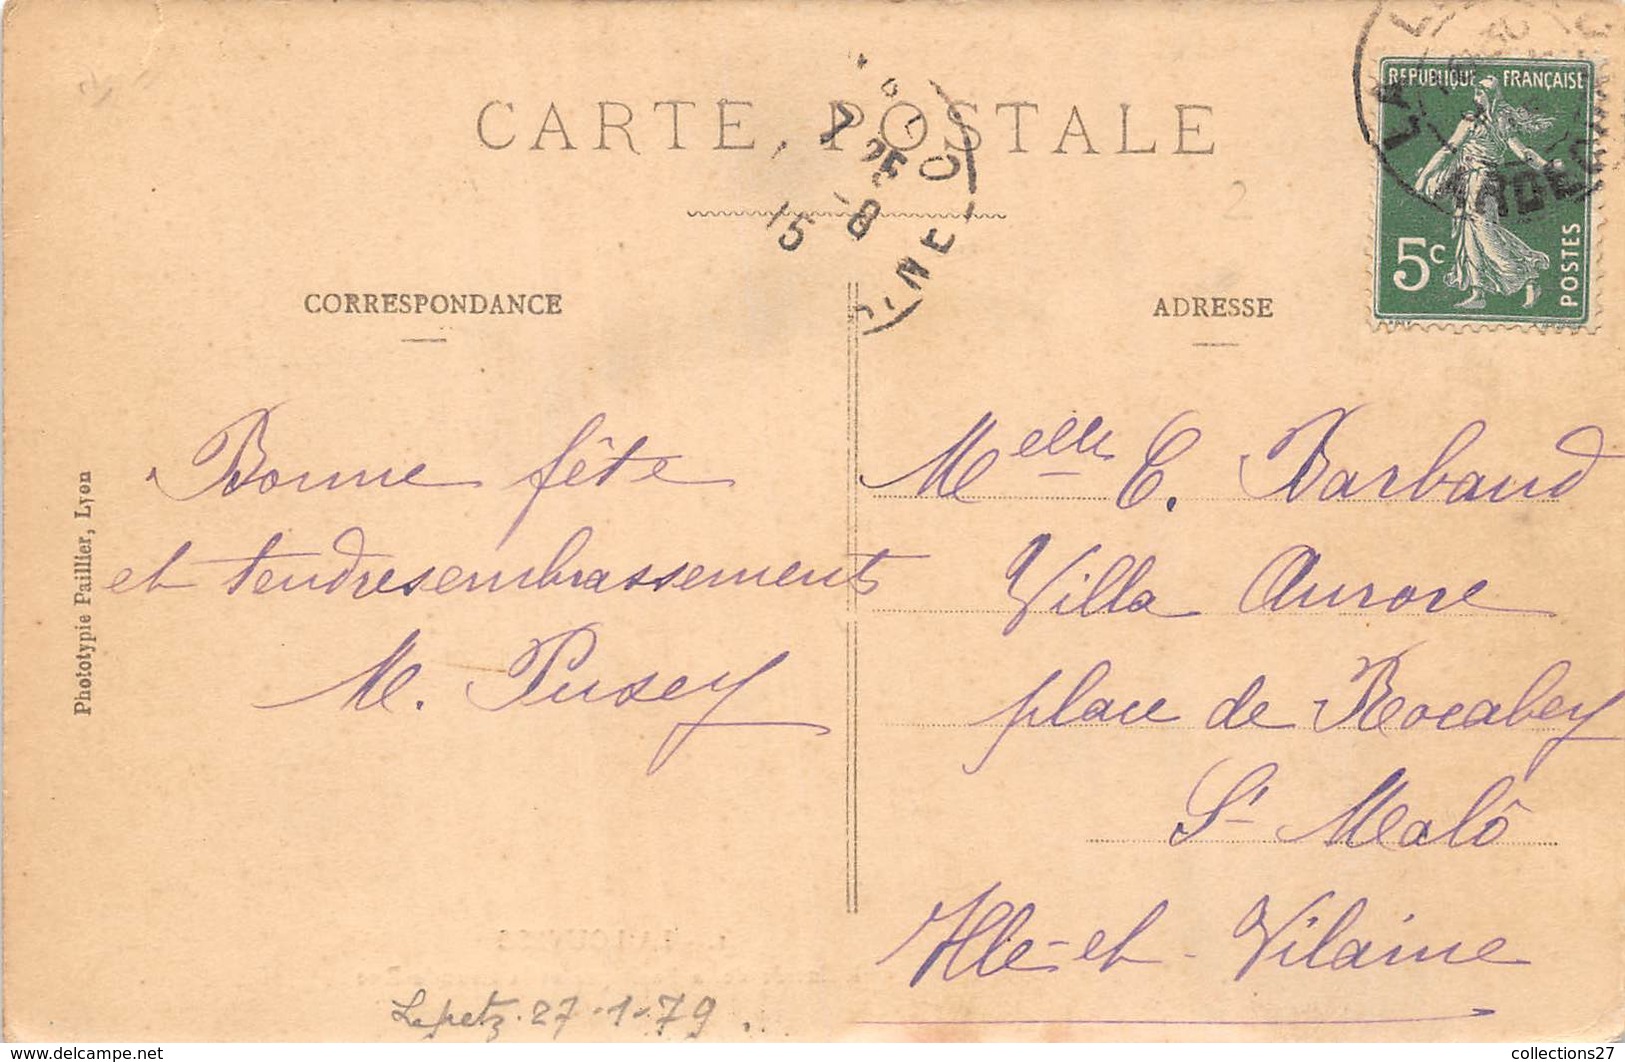 CARTE POSTALE
REPUBLIQUE FRANÇAISE
5c
POSTES
ARDECHE
7
25
8
15
CORRESPONDANCE
ADRESSE
Bonne fête
et tendresembrassements
M. Pusey
Melle C. Barbaud
Villa Aurore
place de Rocabey
St Malô
Ille-et-Vilaine
Phototypie Paillier, Lyon
27-1-79
https://www.delcampe.net
collections27